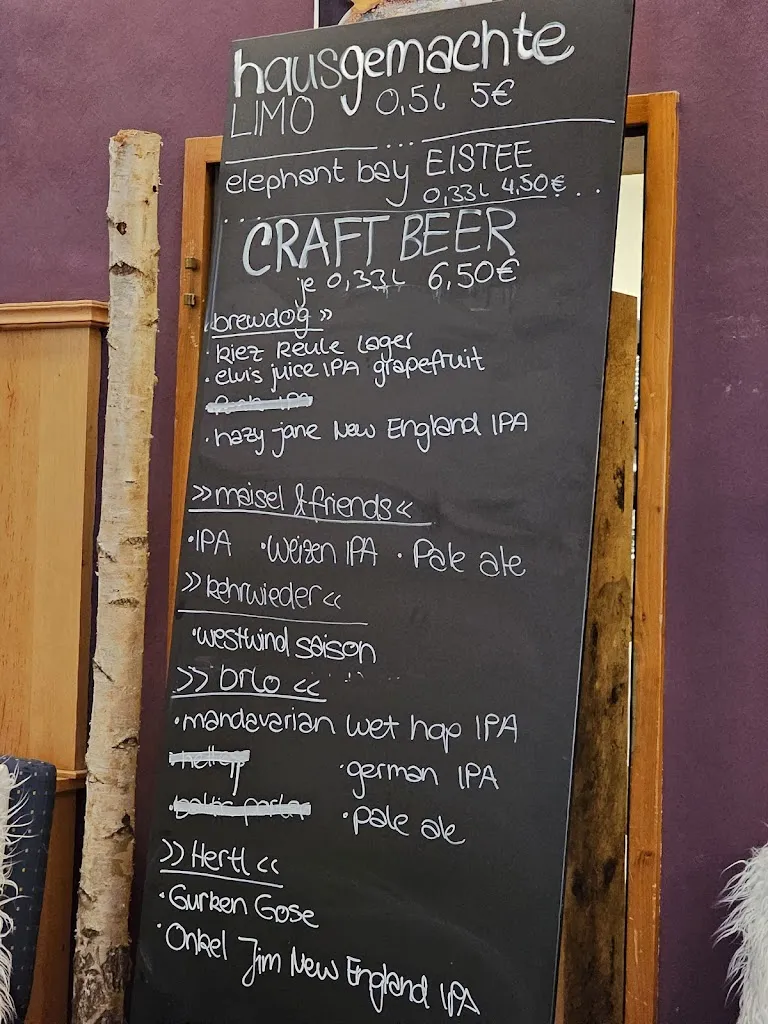 hausgemachte
LIMO 0,5l 5€
elephant bay EISTEE
0,33l 4,50€
CRAFT BEER
je 0,33l 6,50€
brewdog »
· kiez keule lager
· elvis juice IPA grapefruit
· hazy jane New England IPA
»maisel & friends«
· IPA · Weizen IPA · Pale ale
»kehrwieder«
· westwind saison
»brlo«
· mandavarian wet hop IPA
· german IPA
· pale ale
»Hertl«
· Gurken Gose
· Onkel Jim New England IPA